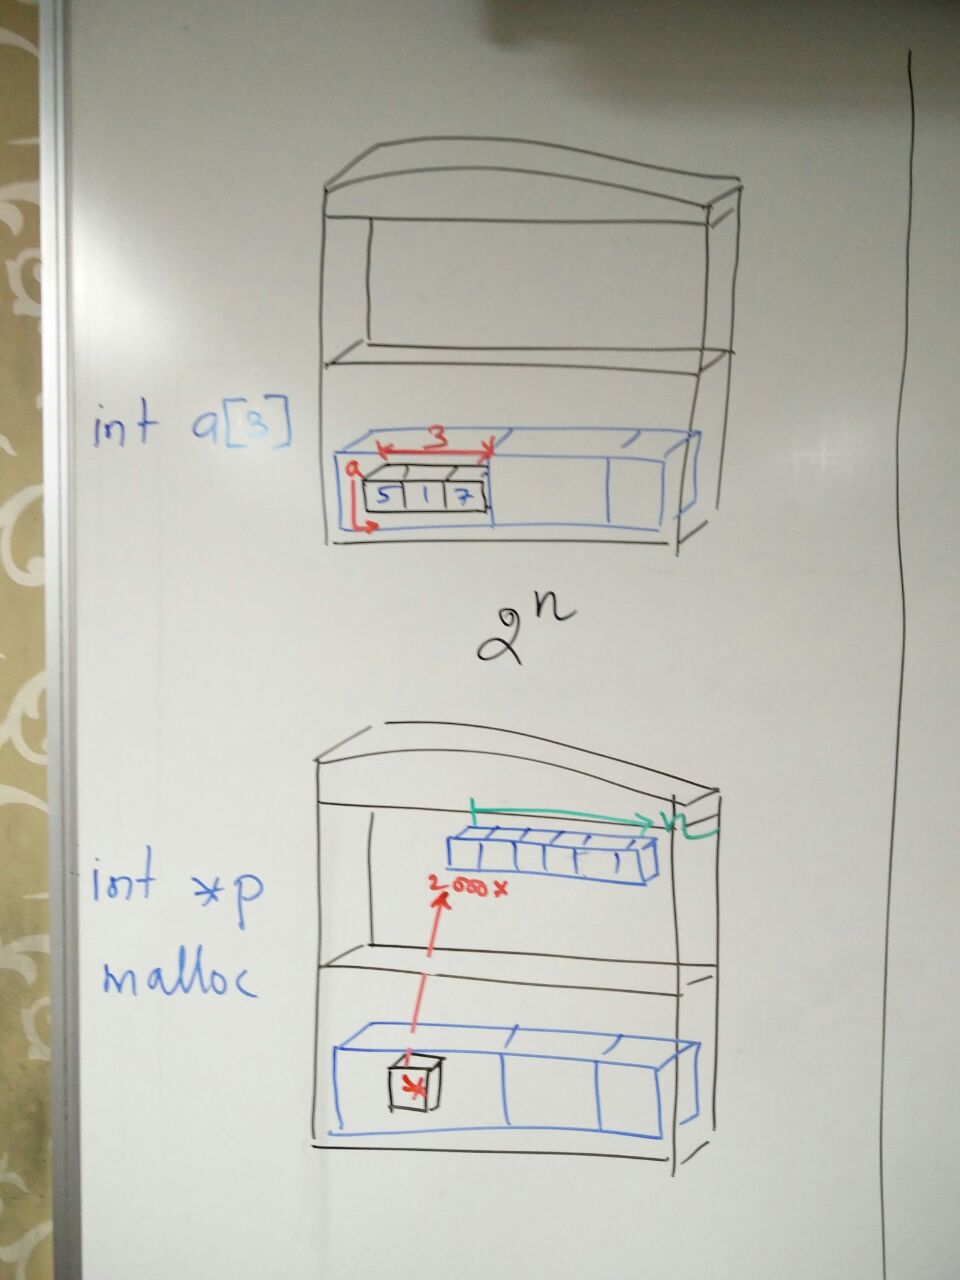 int a[3]
3
a
5 1 7
2ⁿ
n
int *p
malloc
2000*
*